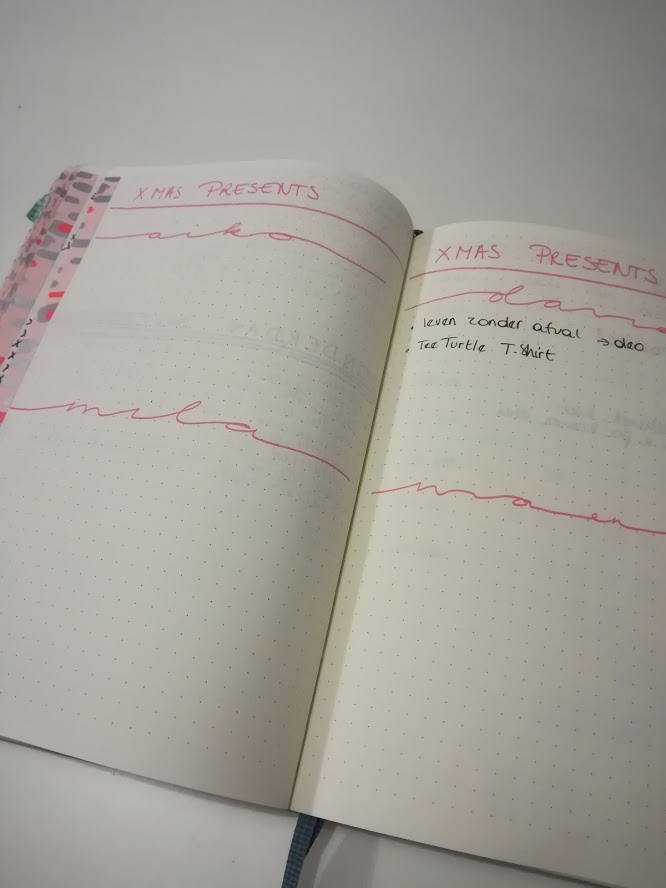 XMAS PRESENTS
aiko
mila
XMAS PRESENTS
• leven zonder afval → deo
• Tee Turtle T-Shirt